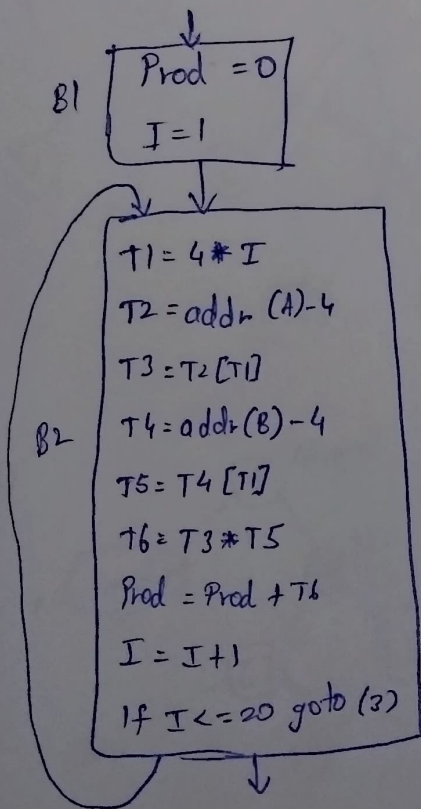 B1
Prod = 0
I = 1
B2
T1 = 4 * I
T2 = addr (A) - 4
T3 = T2 [T1]
T4 = addr (B) - 4
T5 = T4 [T1]
T6 = T3 * T5
Prod = Prod + T6
I = I + 1
If I <= 20 goto (3)